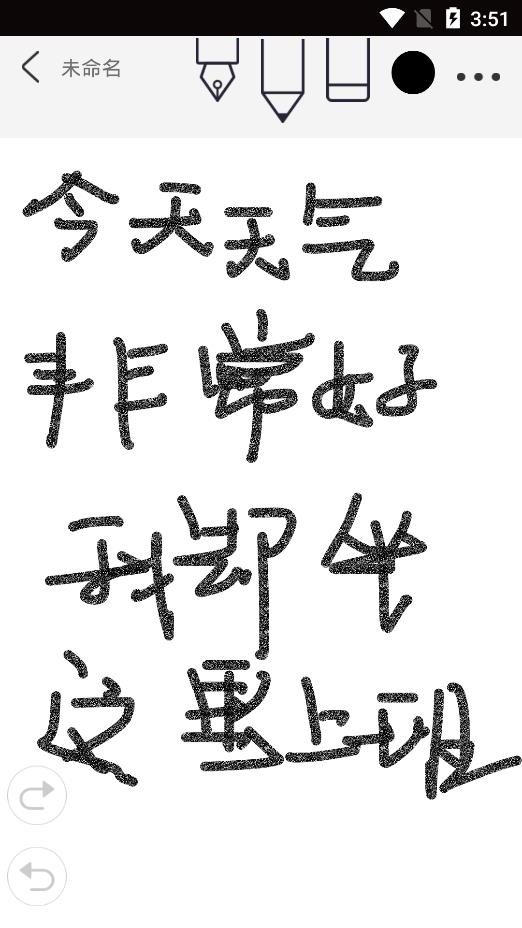 3:51
未命名
今天天气
非常好
我却坐
这里上班